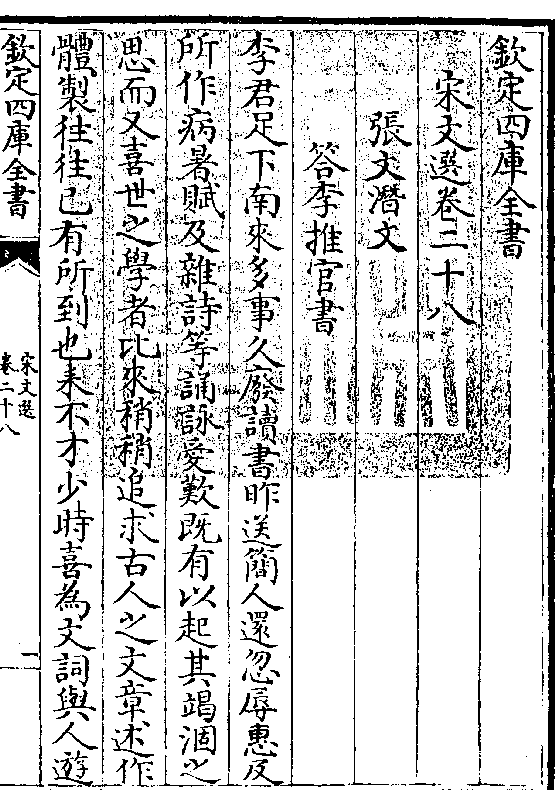 欽定四庫全書
宋文選卷二十八
張文潛文
答李推官書
李君足下南來多事久廢讀書昨送簡人還忽辱惠及
所作病暑賦及雜詩等誦詠愛歎既有以起其竭涸之
思而又喜世之學者比來稍稍追求古人之文章述作
體製往往已有所到也耒不才少時喜為文詞與人遊
欽定四庫全書
宋文選
卷二十八
一